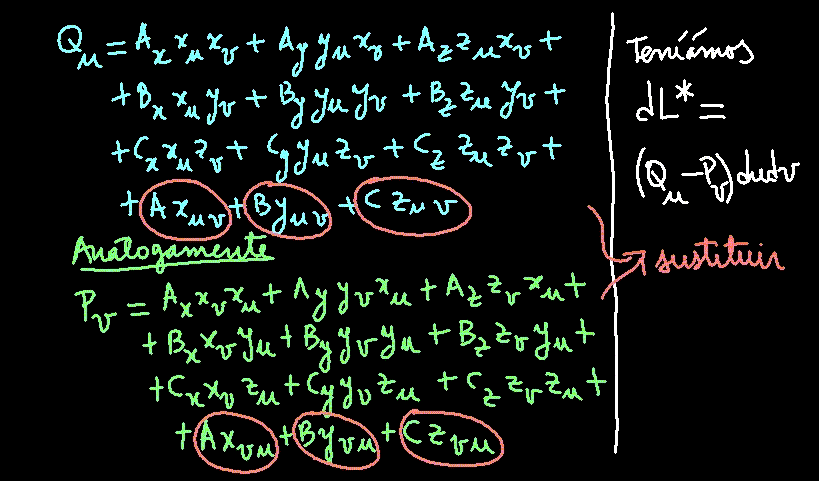 Q_u = A_x x_u x_v + A_y y_u x_v + A_z z_u x_v +
+ B_x x_u y_v + B_y y_u y_v + B_z z_u y_v +
+ C_x x_u z_v + C_y y_u z_v + C_z z_u z_v +
+ A x_{uv} + B y_{uv} + C z_{uv}
Analogamente
P_v = A_x x_v x_u + A_y y_v x_u + A_z z_v x_u +
+ B_x x_v y_u + B_y y_v y_u + B_z z_v y_u +
+ C_x x_v z_u + C_y y_v z_u + C_z z_v z_u +
+ A x_{vu} + B y_{vu} + C z_{vu}
Teníamos
dL* =
(Q_u - P_v) du dv
sustituir